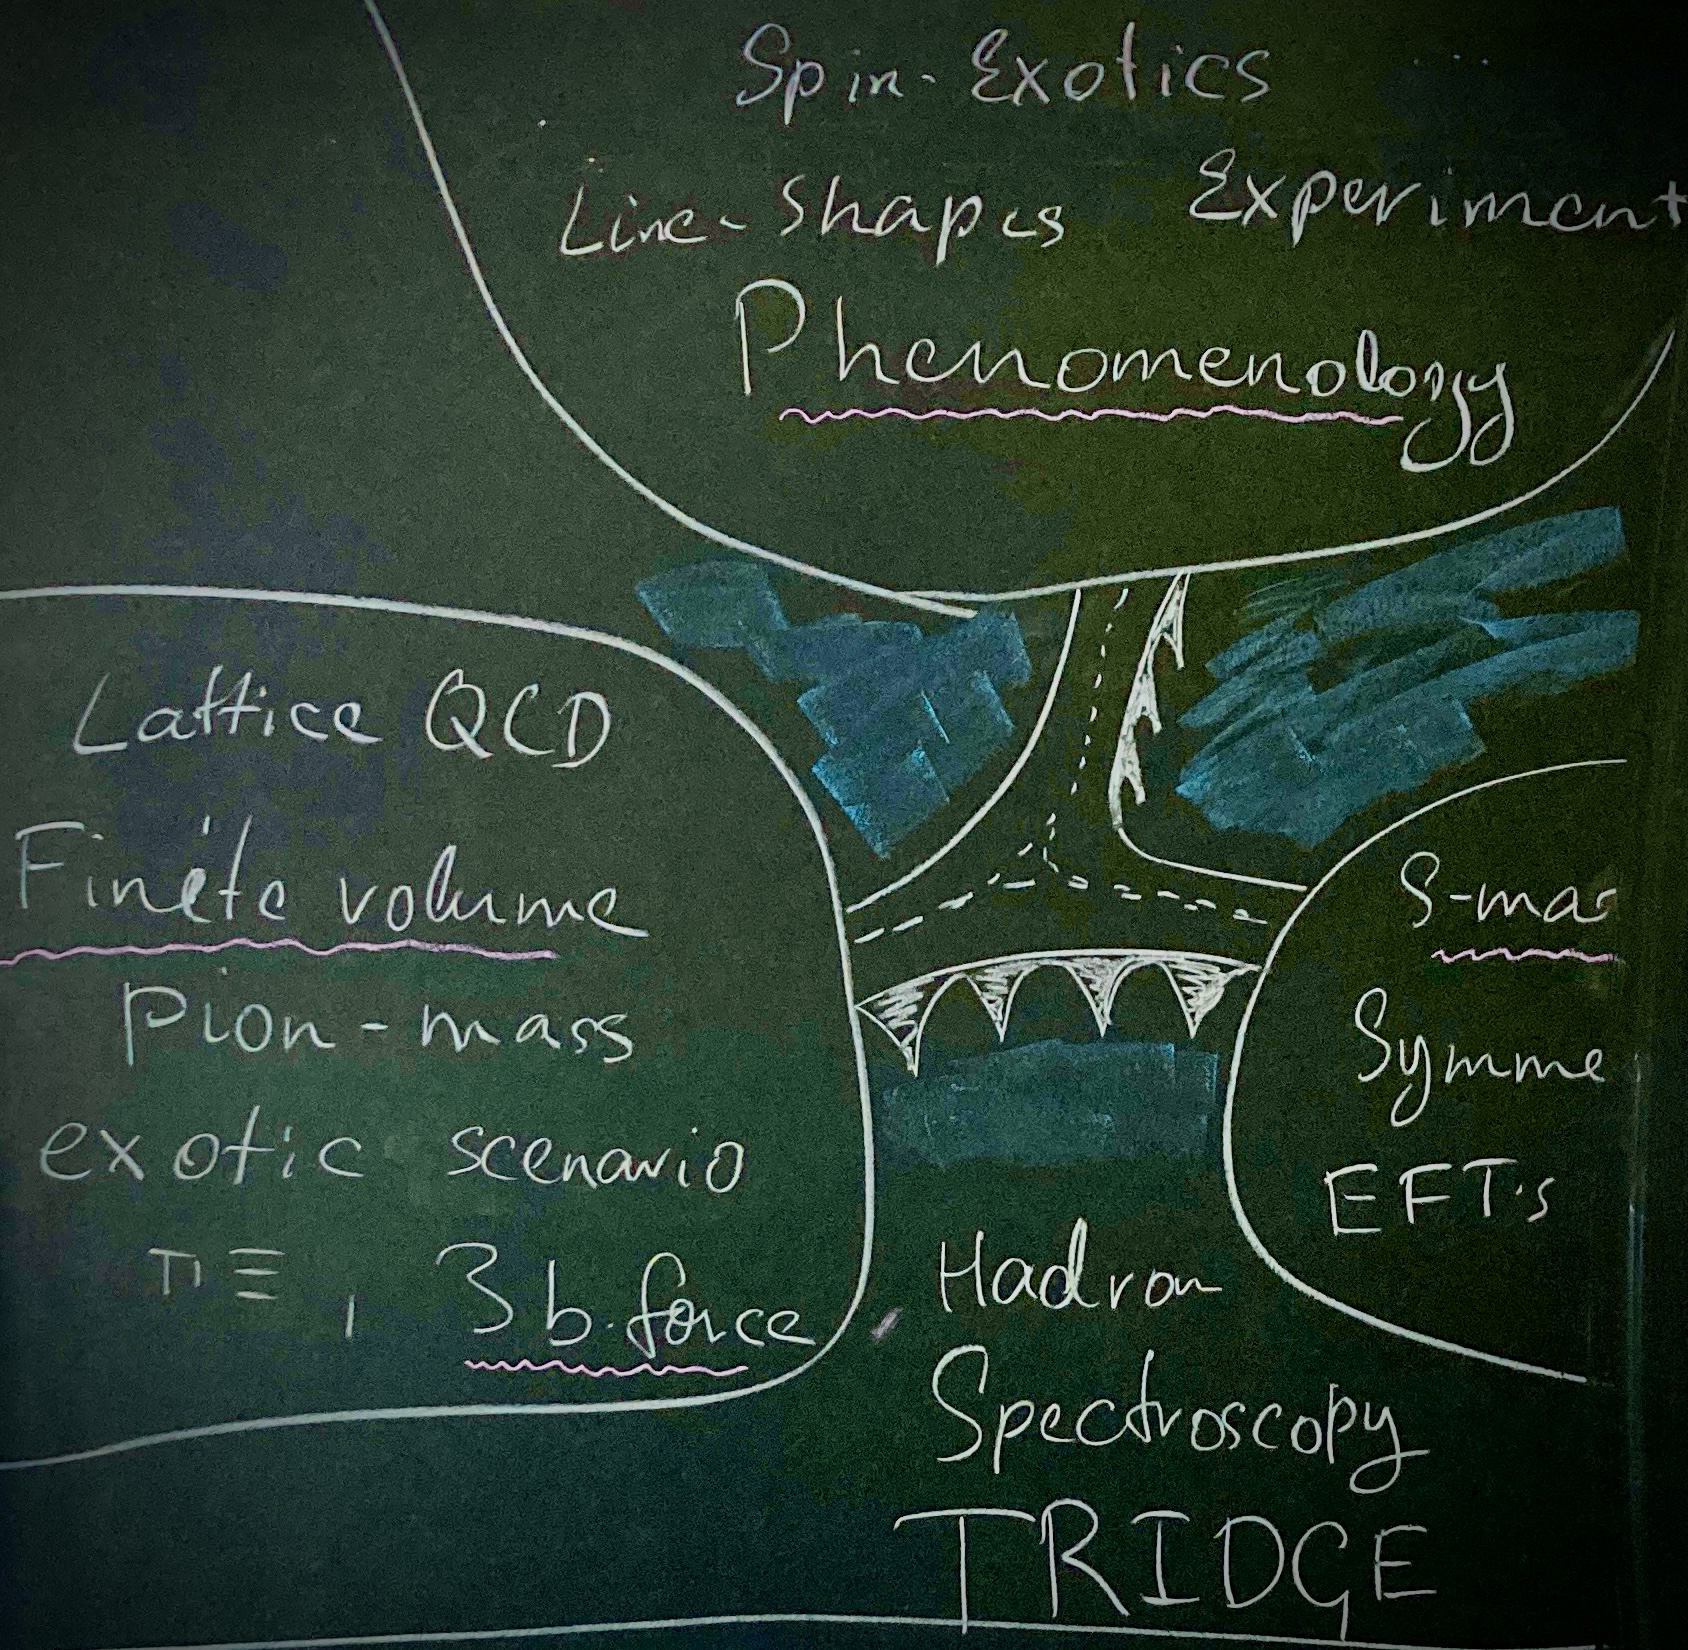 Spin-Exotics ...
Line-shapes Experiment
Phenomenology
Lattice QCD
Finite volume
Pion-mass
exotic scenario
3b.force
S-ma
Symme
EFT's
Hadron
Spectroscopy
TRIDGE